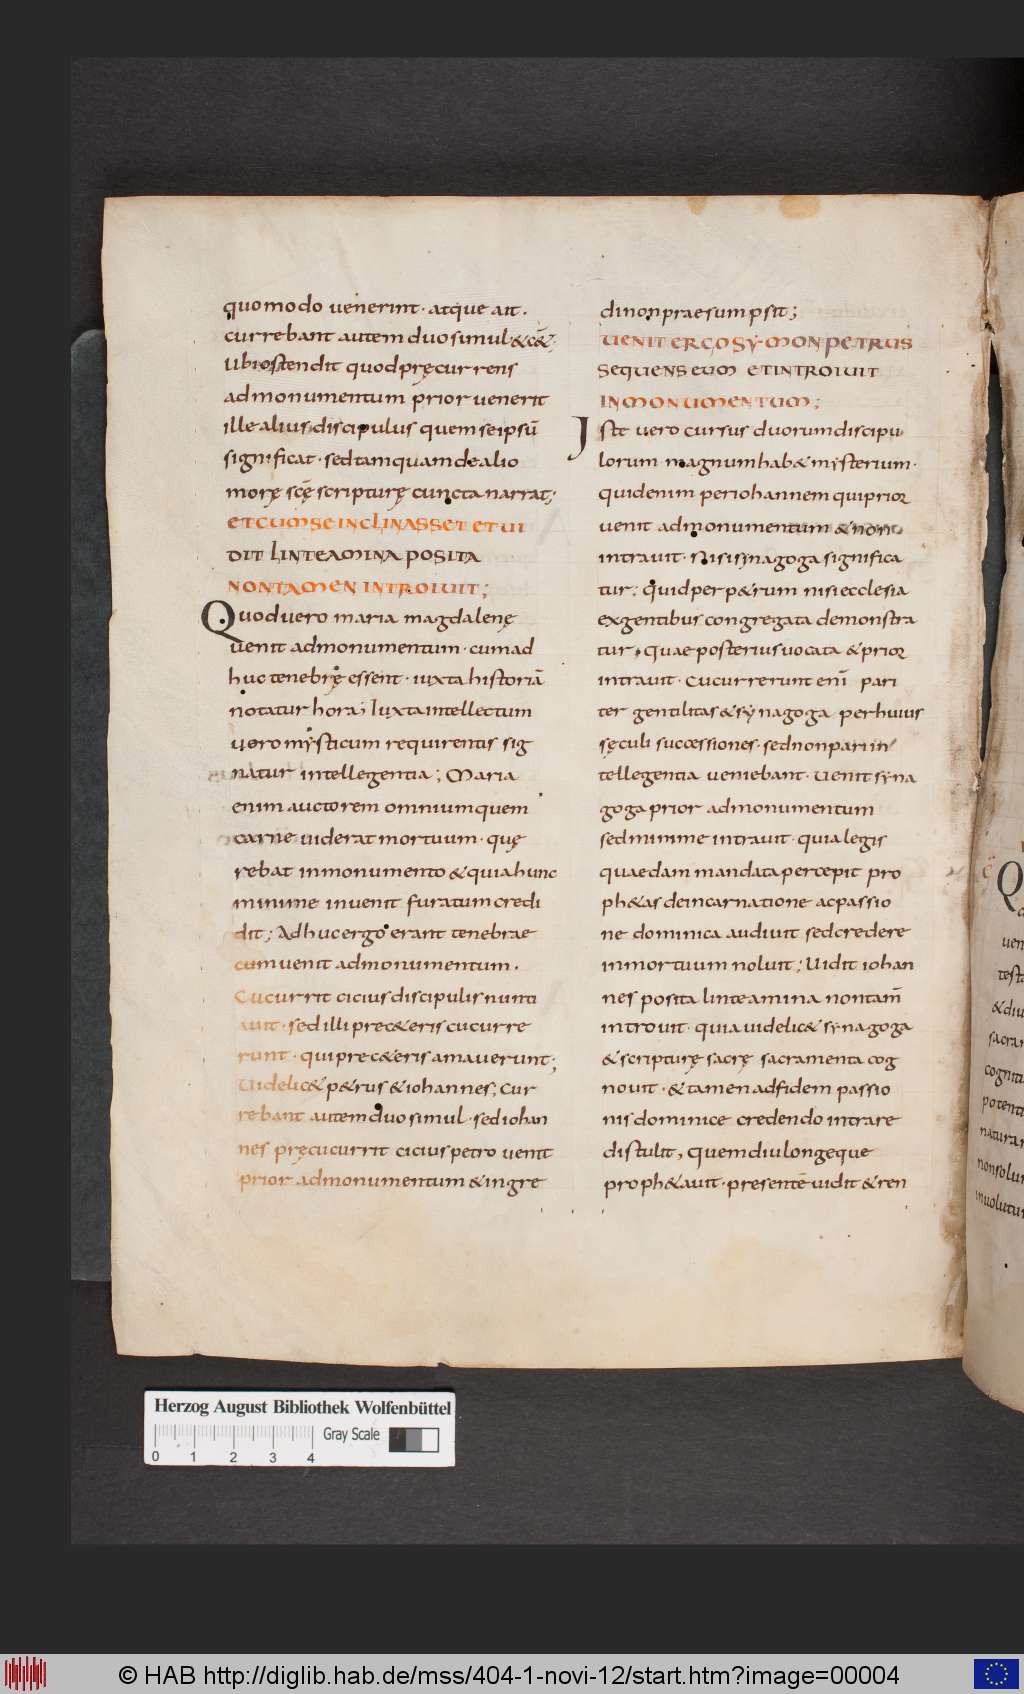 quomodo venerint· atque ait.
currebant autem duo simul & cę&;
Ubi ostendit quod pręcurrens
ad monumentum prior venerit
ille alius discipulus quem se ipsū
significat· sed tamquam de alio
morę scę̄ scripturę cuncta narrat;
ET CUM SE INCLINASSET ET UI
DIT LINTEAMINA POSITA
NON TAMEN INTROIUIT;
Quod vero maria magdalenę
venit ad monumentum· cum ad
huc tenebrę essent· iuxta historiā
notatur hora; Iuxta intellectum
vero mysticum requirentis sig
natur intellegentia; Maria
enim auctorem omnium quem
carne viderat mortuum· quę
rebat in monumento & quia hunc
minime invenit furatum credi
dit; Adhuc ergo erant tenebrae
cum venit ad monumentum.
Cucurrit cicius discipulis nunti
avit· sed illi prec&eris cucurre
runt· qui prec&eris amaverunt;
Uidelic& p&rus & iohannes; Cur
rebant autem duo simul· sed iohan
nes pręcucurrit cicius petro venit
prior ad monumentum & ingre
di non praesumpsit;
UENIT ERGO SYMON PETRUS
SEQUENS EUM ET INTROIUIT
IN MONUMENTUM;
Iste vero cursus duorum discipu
lorum magnum hab& mysterium·
quid enim per iohannem qui prior
venit ad monumentum & non
intravit· Nisi synagoga significa
tur; quid per p&rum nisi ecclesia
ex gentibus congregata demonstra
tur· quae posterius vocata & prior
intravit· Cucurrerunt enī pari
ter gentilitas & synagoga per huius
sęculi successiones· sed non pari in
tellegentia veniebant· Uenit syna
goga prior ad monumentum
sed minime intravit· quia legis
quaedam mandata percepit pro
ph&as de incarnatione ac passio
ne dominica audivit sed credere
in mortuum noluit; Uidit iohan
nes posita linteamina non tam̄
introvit· quia videlic& synagoga
& scripturę sacrę sacramenta cog
novit· & tamen ad fidem passio
nis dominice credendo intrare
distulit, Quem diu longeque
proph&avit· presentē vidit & ren
Herzog August Bibliothek Wolfenbüttel
Gray Scale
0 1 2 3 4
© HAB http://diglib.hab.de/mss/404-1-novi-12/start.htm?image=00004